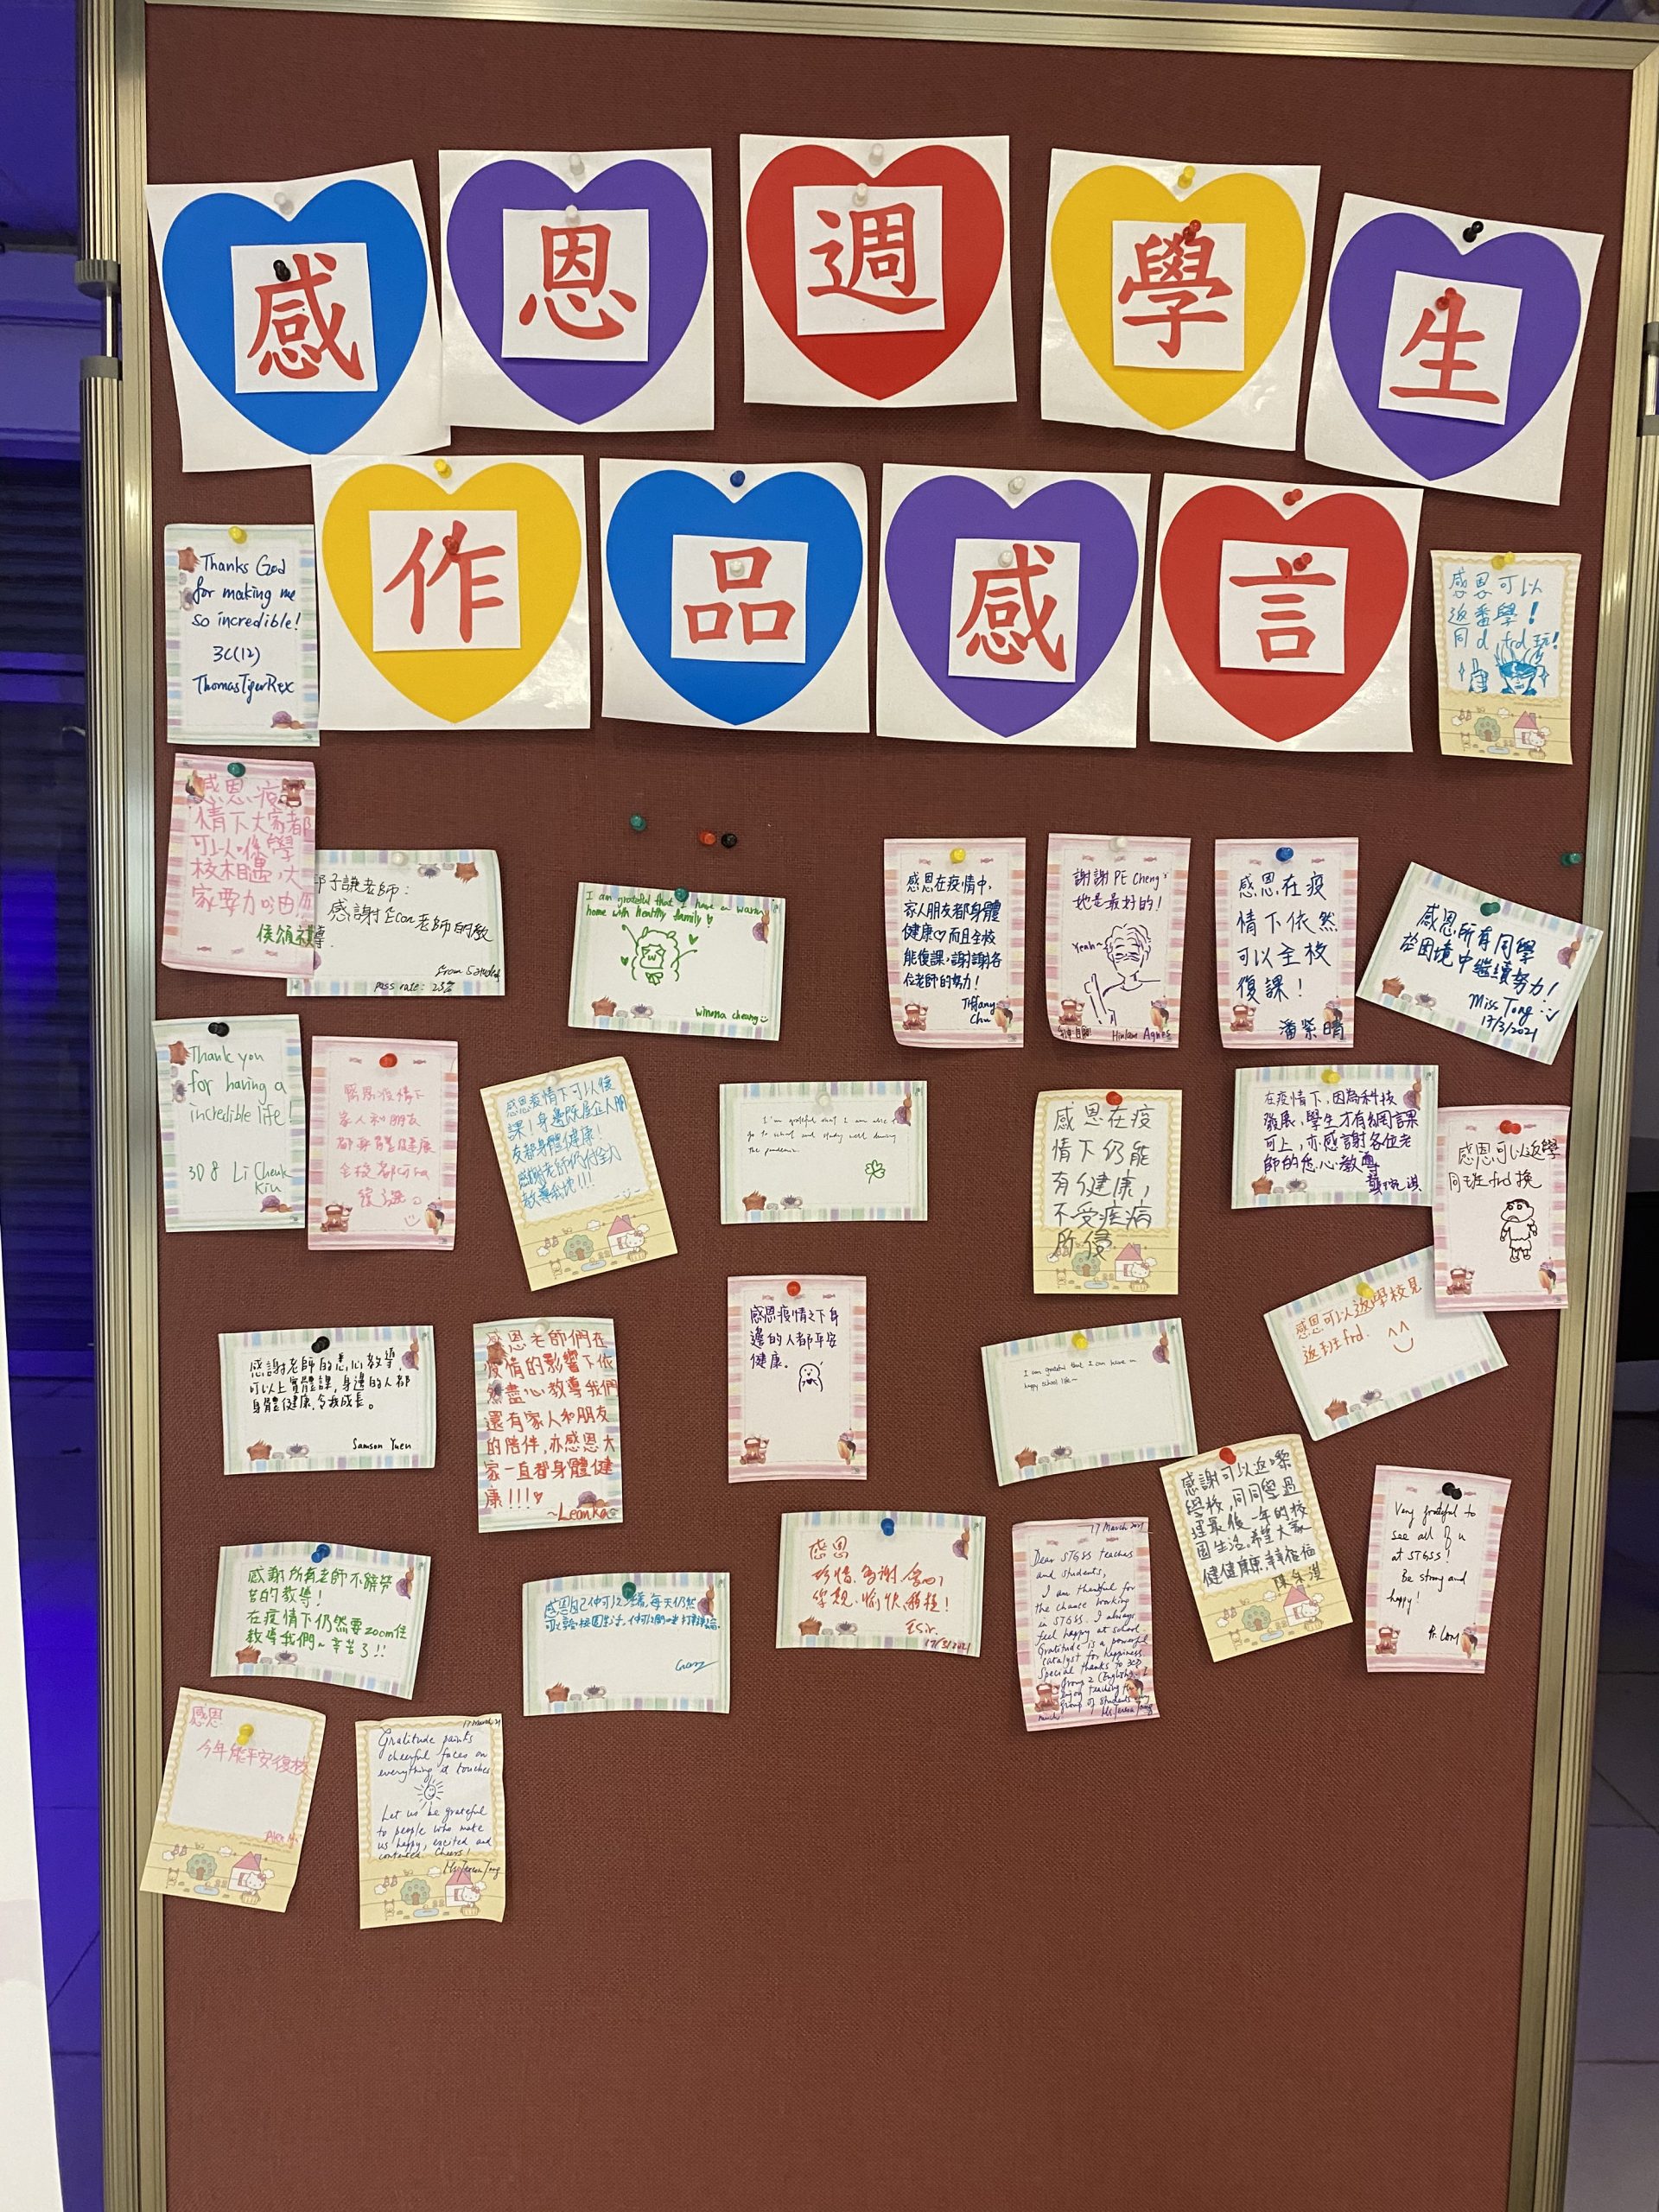 感恩週學生
作品感言
Thanks God
for making me
so incredible!
3C(12)
ThomasTigerRex
感恩可以
返番學!
同d frd玩!
感恩疫
情下大家都
可以喺學
校相遇,大
家要加油
子謙老師:
感謝Econ老師的教
導
pass rate: 23%
I am grateful that I have a warm
home with healthy family
Winona cheang
感恩在疫情中,
家人朋友都身體
健康♡而且全校
能復課,謝謝各
位老師的努力!
Tiffany
Chu
謝謝 PE Cheng,
她是最好的!
Yeah~
Agnes
感恩在疫
情下依然
可以全校
復課!
潘紫晴
感恩所有同學
於困境中繼續努力!
Miss Tong
17/3/2021
Thank you
for having a
incredible life!
3D 8 Li Cheuk
Kiu
感恩疫情下
家人和朋友
都身體健康
全校都可以
復課。
感恩疫情下可以復
課!身邊既屋企人朋
友都身體健康!
感謝老師仍付全力
教導我地!!!
I'm grateful that I am able to
go to school and study well during
the pandemic.
感恩在疫
情下仍能
有健康,
不受疾病
所侵
在疫情下,因為科技
發展,學生才有網課
可上,亦感謝各位老
師的悉心教導
感恩可以返學
同班frd換
感謝老師的悉心教導,
可以上實體課,身邊的人都
身體健康,令我成長。
Samson Yuen
感恩老師們在
疫情的影響下依
然盡心教導我們
還有家人和朋友
的陪伴,亦感恩大
家一直都身體健
康!!!♡
~Leanka~
感恩疫情之下身
邊的人都平安
健康。
I am grateful that I can have a
happy school life~
感恩可以返學校見
返班frd. ^^
感謝所有老師不辭勞
苦的教導!
在疫情下仍然要zoom住
教導我們~辛苦了!!
感恩
珍惜、多謝、
愉快、積極!
17/3/2021
17 March 2021
Dear STGSS teachers
and students,
I am thankful for
the chance working
in STGSS. I always
feel happy at school.
Gratitude is a powerful
catalyst for happiness.
Special thanks to 3CD
Group 2 (English). I
enjoy teaching this
group of students very
much!
感謝可以返嚟
學校,同同學過
埋最後一年的校
園生活。希望大家
健健康康,幸幸福福
Very grateful to
see all of u
at STGSS!
Be strong and
happy!
Pr. Lam
感恩
今年能平安復校
17 March 21
Gratitude paints
cheerful faces on
everything it touches
Let us be grateful
to people who make
us happy, excited and
contented. Cheers!